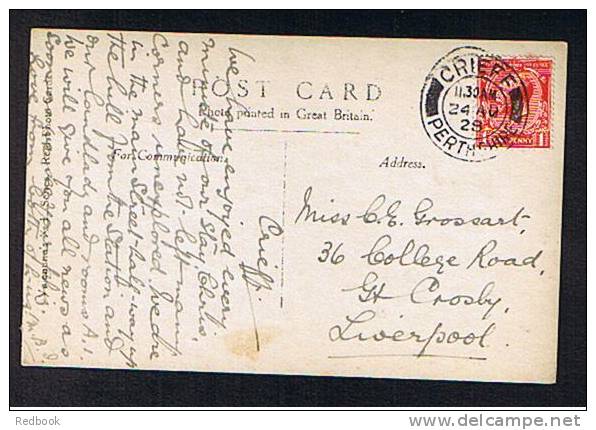 POST CARD
Photo printed in Great Britain.
For Communication.
Address.
CRIEFF
11.30 AM
24 AU
29
PERTHSHIRE
PENNY
Crieff.
We have enjoyed every
minute of our stay, Chris,
and have not left many
corners unexplored. We're
in the main street-half-way up
the hill from the station and
our landlady and rooms A.1.
We will give you all news as
soon as
Love from
Miss C.E. Grossart,
36 College Road,
Gt Crosby,
Liverpool.
Redbook
delcampe.net